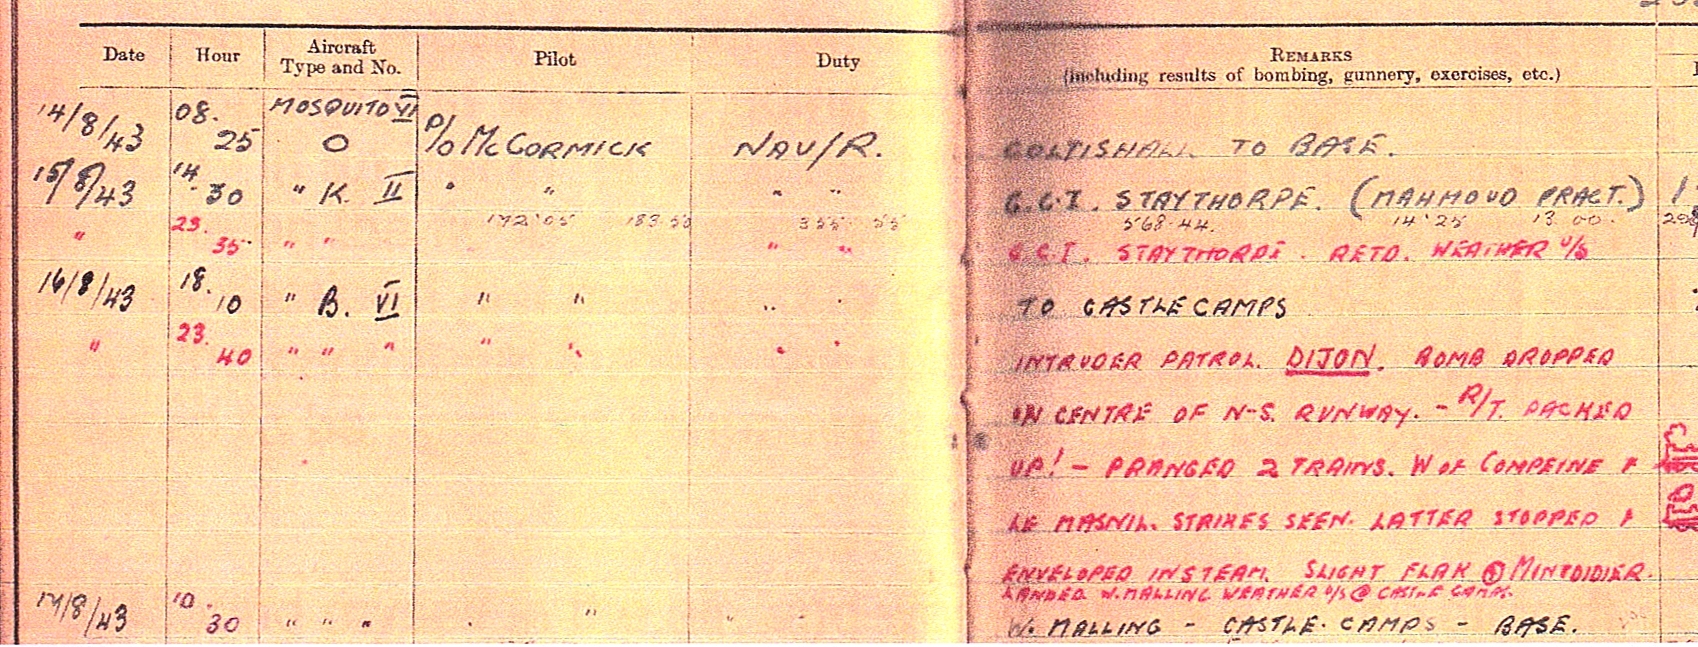 Date Hour Aircraft Type and No. Pilot Duty REMARKS (including results of bombing, gunnery, exercises, etc.)
14/8/43 08.25 MOSQUITO VI O P/O McCORMICK NAV/R. COLTISHALL TO BASE.
15/8/43 14.30 " K. II " " " " G.C.I. STAYTHORPE. (MAHMOUD PRACT.)
172'05 183.50 355 55 568.44. 14'25 13 00.
" 23.35 " " " " G.C.I. STAYTHORPE. RETD. WEATHER U/S
16/8/43 18.10 " B. VI " " " " TO CASTLE CAMPS
" 23.40 " " " " " " " INTRUDER PATROL. DIJON. BOMB DROPPED
ON CENTRE OF N-S. RUNWAY. - R/T. PACKED
UP! - PRANGED 2 TRAINS. W OF COMPEINE &
LE MASNIL. STRIKES SEEN. LATTER STOPPED &
ENVELOPED IN STEAM. SLIGHT FLAK @ MINTDIDIER.
LANDED W. MALLING WEATHER U/S @ CASTLE CAMPS.
17/8/43 10.30 " " " " " " " W. MALLING - CASTLE CAMPS - BASE.